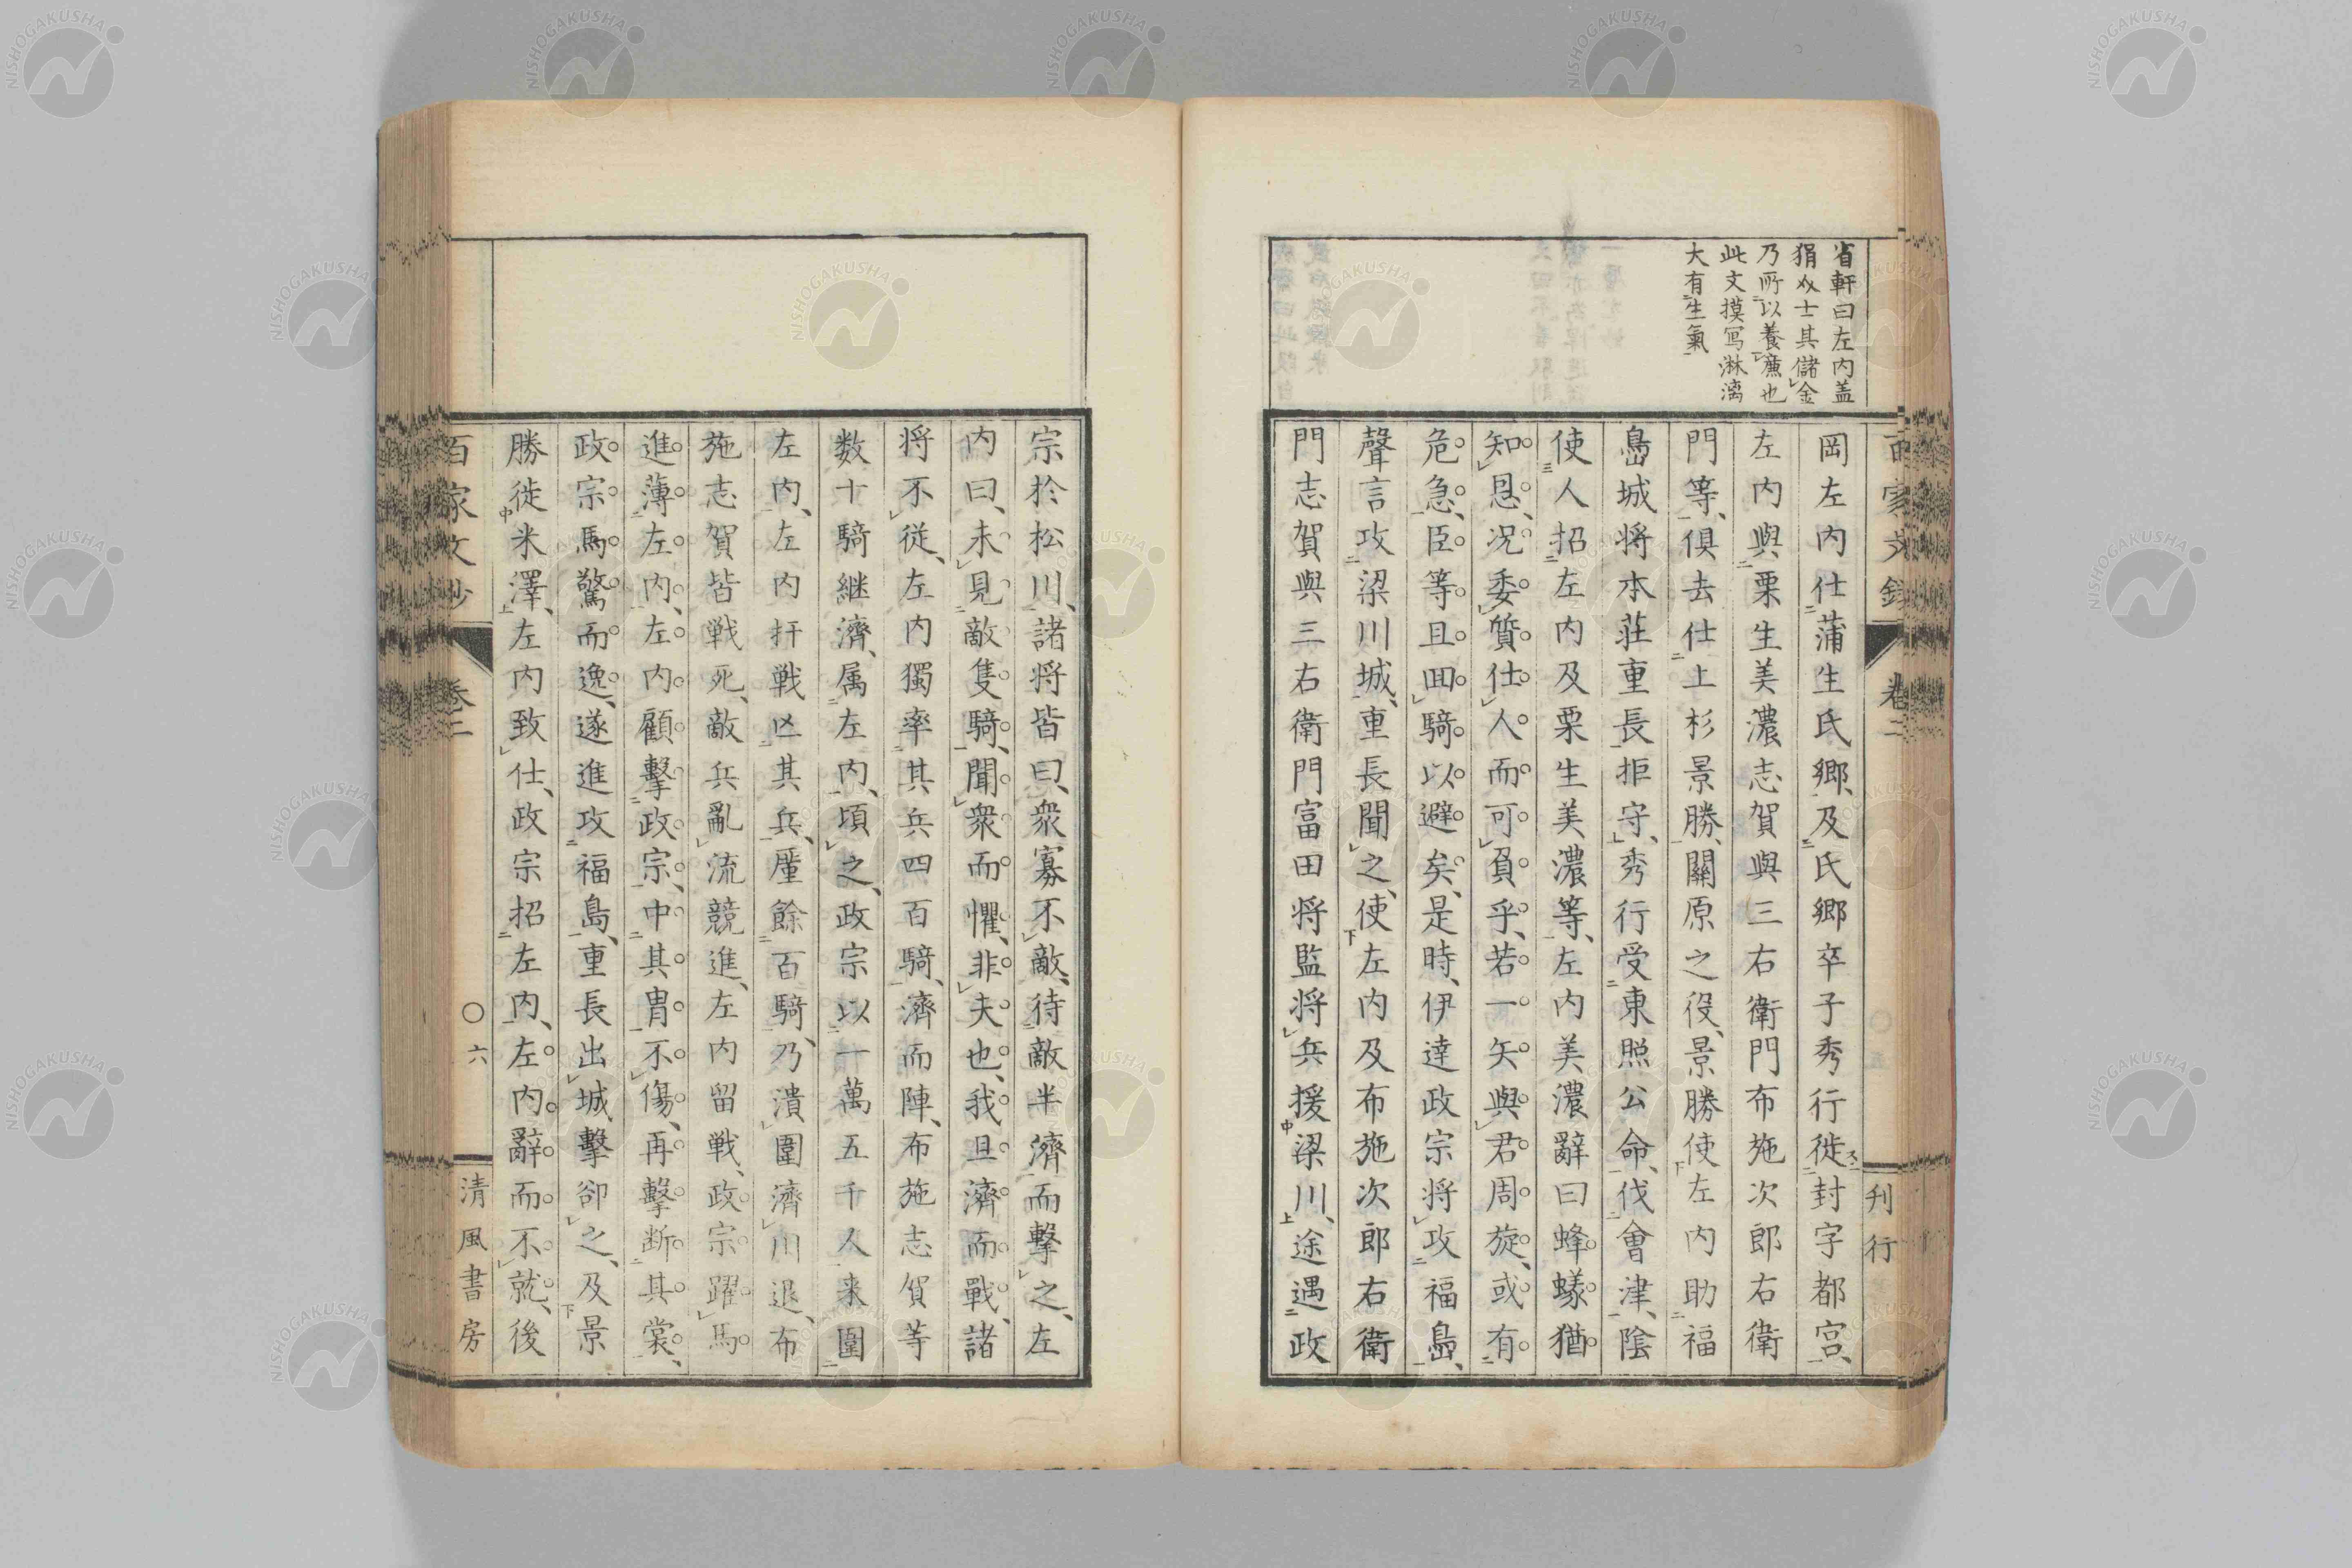 省軒曰左内盖
狷介士其儲金
乃所以養廉也
此文摸写淋漓
大有生氣
岡左内仕蒲生氏郷、及氏郷卒子秀行徙封宇都宮、
左内與栗生美濃志賀與三右衛門布施次郎右衛
門等、俱去仕上杉景勝、關原之役、景勝使左内助福
島城将本荘重長拒守、秀行受東照公命、伐會津、陰
使人招左内及栗生美濃等、左内美濃辭曰蜂蟻猶
知恩、況委質仕人而可負乎、若一矢與君周旋、或有
危急、臣等且回騎以避矣、是時、伊達政宗将攻福島、
聲言攻梁川城、重長聞之、使左内及布施次郎右衛
門志賀與三右衛門富田将監将兵援梁川、途遇政
宗於松川、諸将皆曰、衆寡不敵、待敵半濟而擊之、左
内曰、未見敵隻騎、聞衆而懼、非夫也、我且濟而戰、諸
将不従、左内獨率其兵四百騎、濟而陣、布施志賀等
数十騎継濟、属左内、頃之、政宗以一萬五千人来圍
左内、左内扞戦亡其兵、厪餘百騎、乃潰圍濟川退、布
施志賀皆戦死、敵兵亂流競進、左内留戦、政宗躍馬
進薄左内、左内顧擊政宗、中其冑不傷、再擊断其裳、
政宗馬驚而逸、遂進攻福島、重長出城擊卻之、及景
勝徙米澤、左内致仕、政宗招左内、左内辭而不就、後
百家文鈔
卷二
刊行
百家文抄
卷二
〇六
清風書房
NISHOGAKUSHA